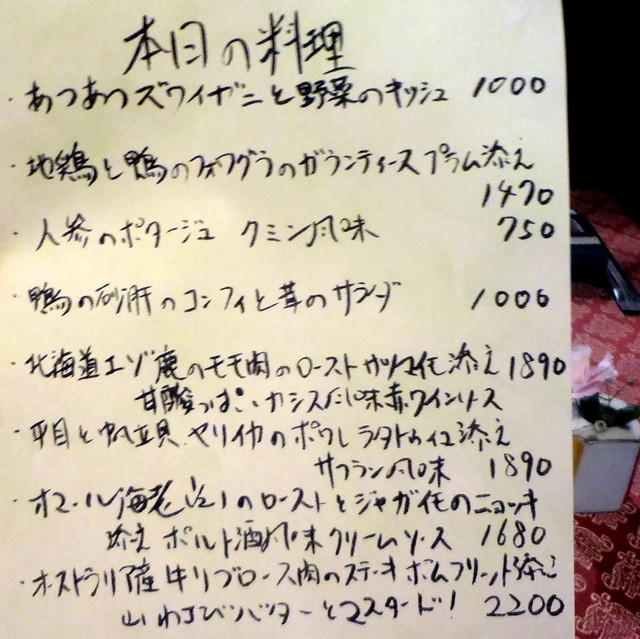 本日の料理
・あつあつズワイガニと野菜のキッシュ 1000
・地鶏と鴨のフォワグラのガランティース プラム添え
1470
・人参のポタージュ クミン風味 750
・鴨の砂肝のコンフィと茸のサラダ 1000
・北海道エゾ鹿のモモ肉のロースト サツマイモ添え 1890
甘酸っぱいカシス風味赤ワインソース
・平目と帆立貝、ヤリイカのポワレ ラタトゥイユ添え
サフラン風味 1890
・オマール海老1/2のローストとジャガイモのニョッキ
添え ポルト酒風味クリームソース 1680
・オーストラリア産牛リブロース肉のステーキ ポムフリット添え
山わさびバターとマスタード! 2200